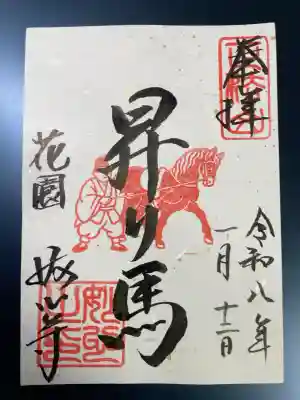 奉拝
令和八年
一月十二日
昇り馬
花園
妙心寺